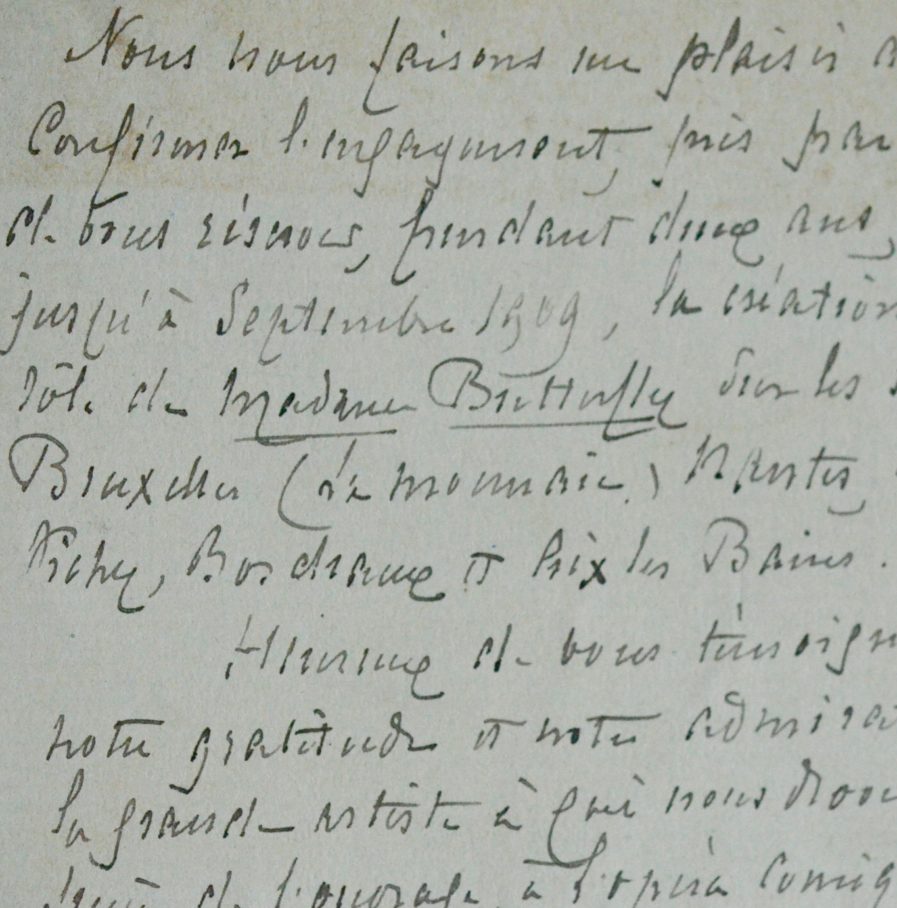 Nous nous faisons un plaisir d
Confirmer l'engagement, pris par
de vous réserver, pendant deux ans,
jusqu'à Septembre 1909, la création
rôle de Madame Butterfly sur les
Bruxelles (La monnaie) Nantes,
Vichy, Bordeaux et Aix les Bains.
Heureux de vous témoign
notre gratitude et notre admira
la grande artiste à qui nous devo
de l'ouvrage, à l'opéra Comiq